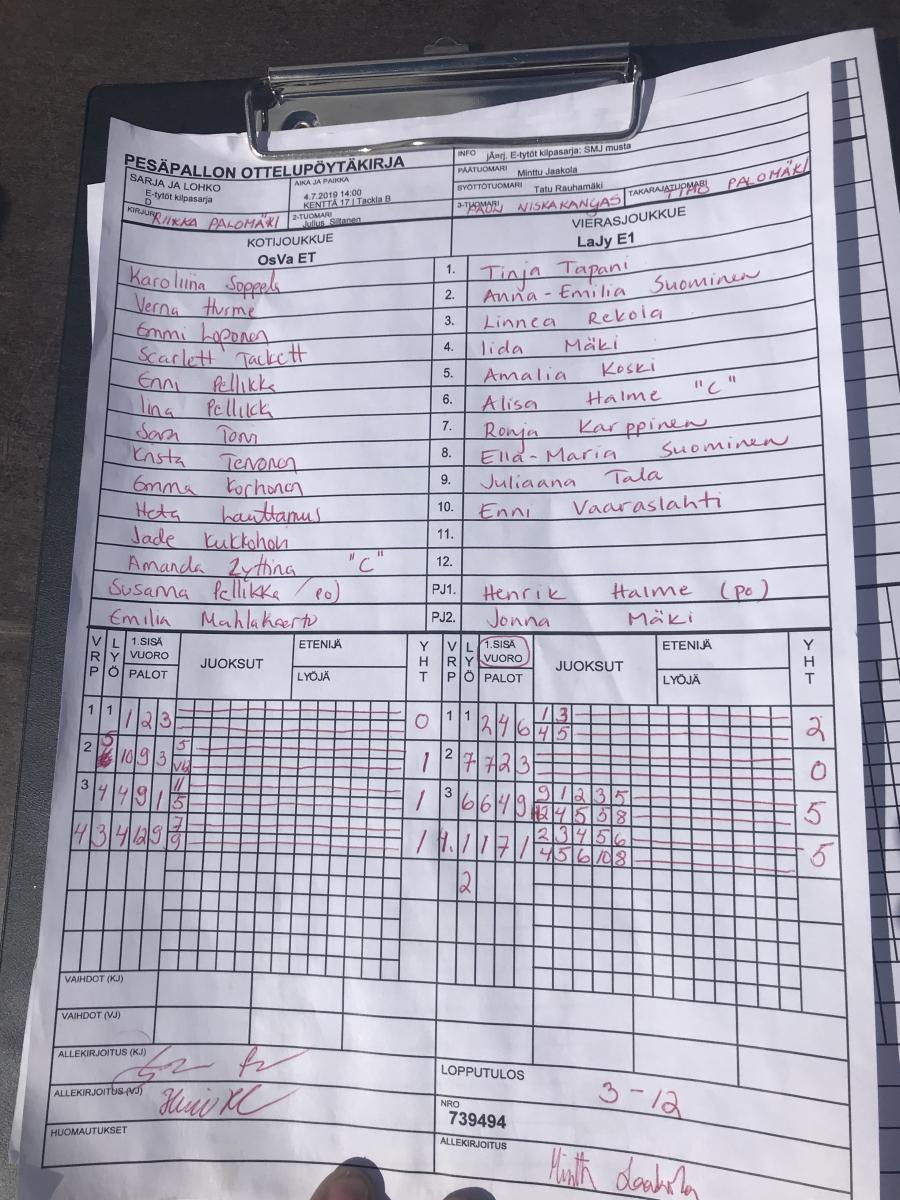 PESÄPALLON OTTELUPÖYTÄKIRJA
INFO jÄarj. E-tytöt kilpasarja: SMJ musta
PÄÄTUOMARI Minttu Jaakola
SARJA JA LOHKO
E-tytöt kilpasarja
D
AIKA JA PAIKKA
4.7.2019 14:00
KENTTÄ 17 | Tackla B
SYÖTTÖTUOMARI Tatu Rauhamäki
KIRJURI RIIKKA PALOMÄKI
2-TUOMARI
Julius Siltanen
3-TUOMARI NISKAKANGAS
TAKARAJATUOMARI TIMO PALOMÄKI
KOTIJOUKKUE
OsVa ET
VIERASJOUKKUE
LaJy E1
Karoliina Soppela 1. Tinja Tapani
Verna Hurme 2. Anna-Emilia Suominen
Emmi Loponen 3. Linnea Rekola
Scarlett Tackett 4. Iida Mäki
Enni Pellikka 5. Amalia Koski
Iina Pellikk 6. Alisa Halme "C"
Sara Torvi 7. Ronja Karppinen
Krista Tervonen 8. Ella-Maria Suominen
Emma Korhonen 9. Juliaana Tala
Heta Lauttamus 10. Enni Vaaraslahti
Jade Kukkohovi 11.
Amanda "C" 12.
Susanna Pellikka (po) PJ1. Henrik Halme (po)
Emilia PJ2. Jonna Mäki
VRP LYÖ 1.SISÄ VUORO PALOT JUOKSUT ETENIJÄ LYÖJÄ YHT VRP LYÖ 1.SISÄ VUORO PALOT JUOKSUT ETENIJÄ LYÖJÄ YHT
1 1 1 2 3 0 1 1 2 4 6 1 3 2
4 5
2 5 10 9 3 5 1 2 7 7 2 3 0
VL
3 4 4 9 1 11 1 3 6 6 4 9 9 1 2 3 5 5
5 12 4 5 5 8
4 3 4 12 9 7 1 4. 1 1 7 1 2 3 4 5 6 5
9 4 5 6 10 8
2
VAIHDOT (KJ)
VAIHDOT (VJ)
ALLEKIRJOITUS (KJ)
LOPPUTULOS 3-12
ALLEKIRJOITUS (VJ)
NRO
739494
HUOMAUTUKSET
ALLEKIRJOITUS Minttu Jaakola